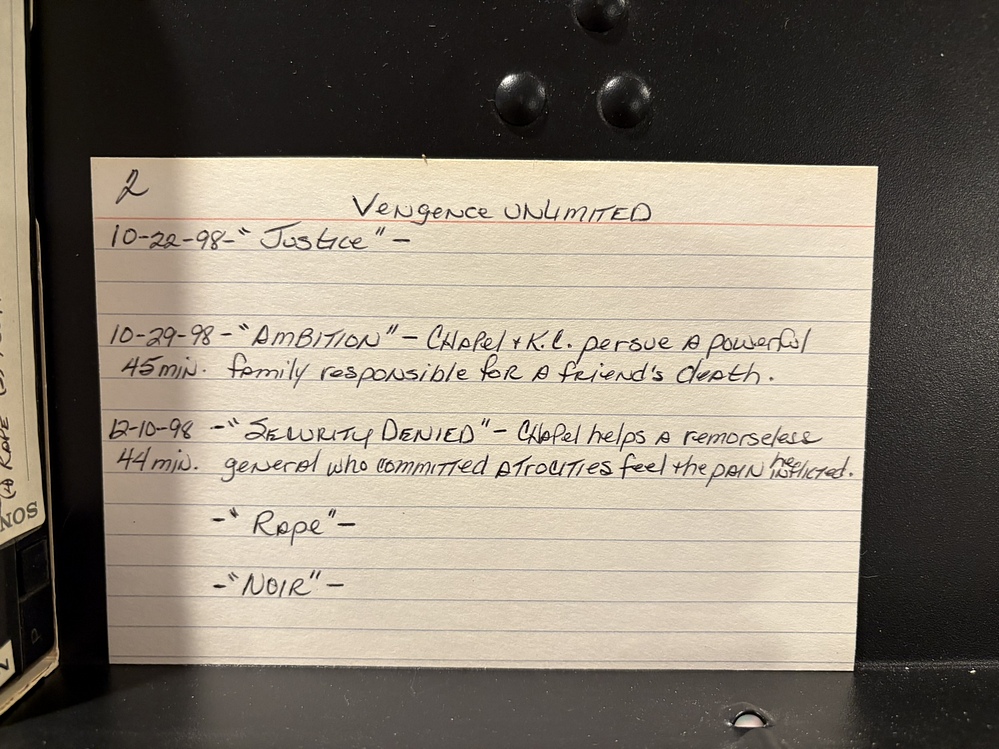 2
Vengence UNLIMITED
10-22-98-" Justice" -
10-29-98 -"AMBITION" - CHAPel + K.C. persue A powerful
45 min. family responsible for A friend's death.
12-10-98 -"SECURITY DENIED" - CHAPel helps A remorseless
44 min. general who committed ATROCITIES feel the PAIN he inflicted.
-" Rape"-
-"NOIR" -
RAPE
SON